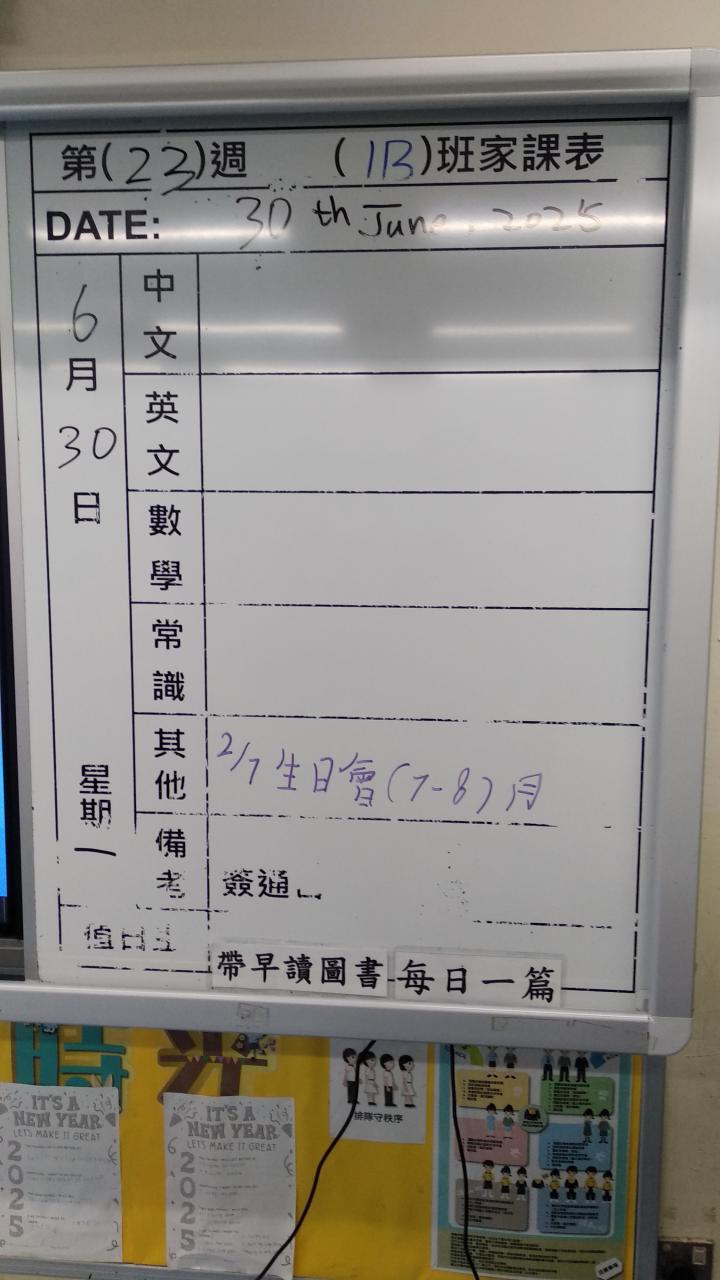 第(23)週 (1B)班家課表
DATE: 30th June, 2025
6月30日
星期一
中文
英文
數學
常識
其他 2/7生日會(7-8)月
備考 簽通
值日生
帶早讀圖書 每日一篇
時光
排隊守秩序
IT'S A
NEW YEAR
LET'S MAKE IT GREAT
2025
IT'S A
NEW YEAR
LET'S MAKE IT GREAT
2025